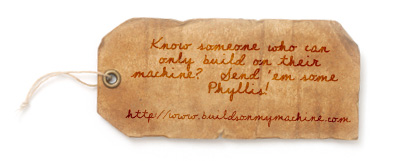 Know someone who can
only build on their
machine? Send 'em some
Phyllis!
http://www.buildsonmymachine.com